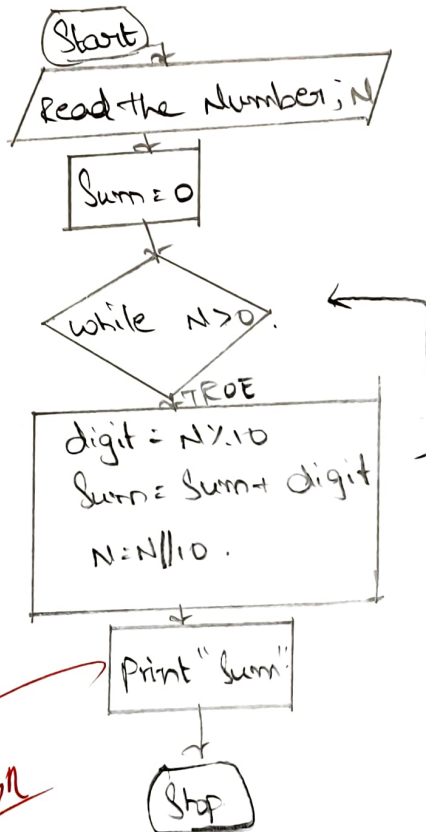 Start
Read the Number; N
Sum = 0
while N>0.
TRUE
digit = N%10
Sum = Sum + digit
N = N//10.
Print "Sum"
Stop